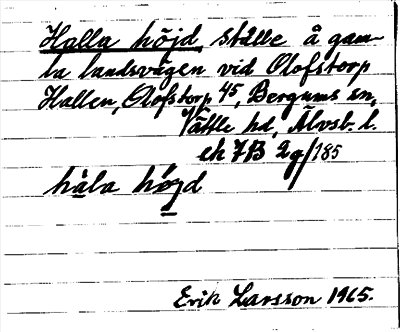 Halla höjd, ställe å gam-
la landsvägen vid Olofstorp
Hallen, Olofstorp 45, Bergums sn,
Vättle hd, Älvsb. l.
ek 7B 2g/185
hala höjd
Erik Larsson 1965.